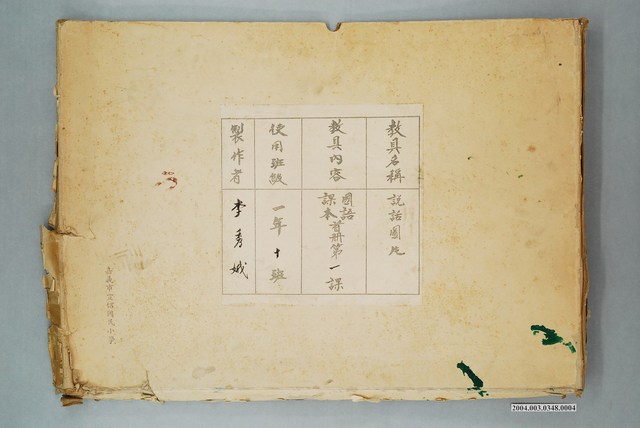 教具名稱
說話圖片
教具內容
國語
課本首册第一課
使用班級
一年十班
製作者
李秀娥
2004.003.0348.0004